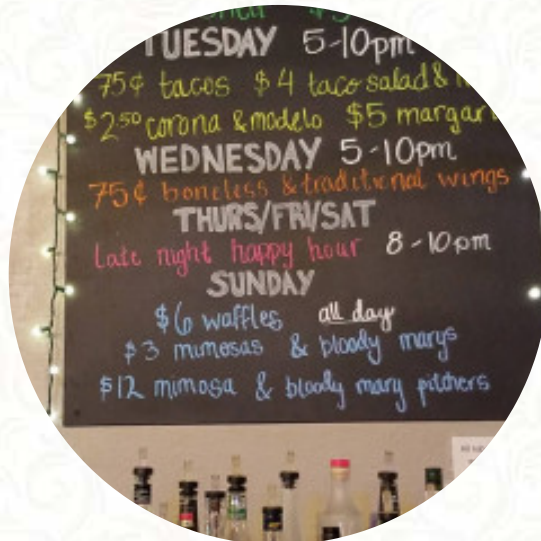 TUESDAY 5-10pm
75¢ tacos $4 taco salad &
$2.50 corona & modelo $5 margar
WEDNESDAY 5-10pm
75¢ boneless & traditional wings
THURS/FRI/SAT
Late night happy hour 8-10pm
SUNDAY
$6 waffles all day
$3 mimosas & bloody marys
$12 mimosa & bloody mary pitchers